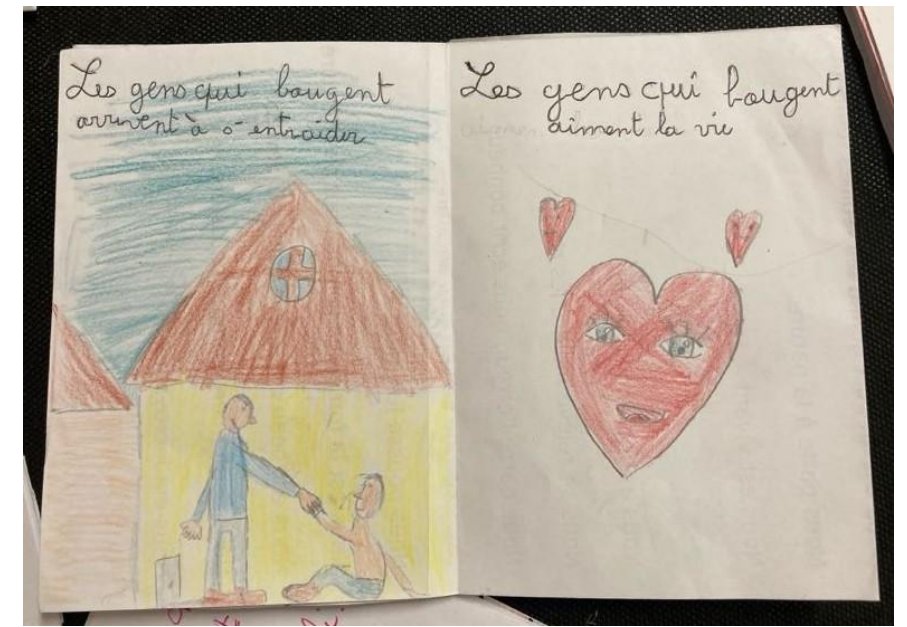 Les gens qui bougent
arrivent à s'entraider
Les gens qui bougent
aiment la vie